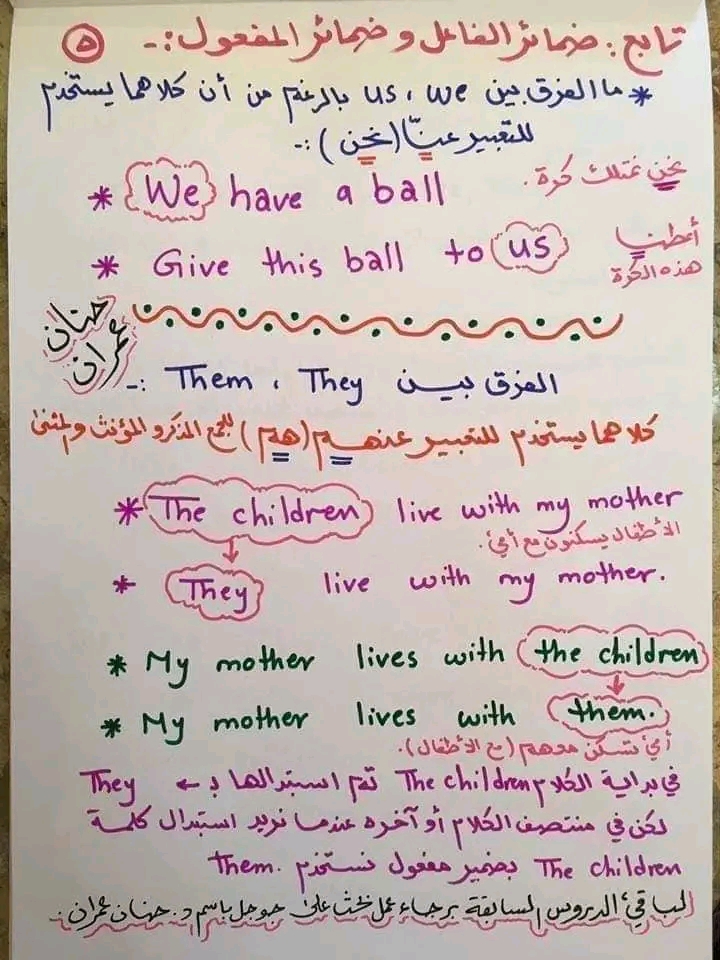 تابع : ضمائر الفاعل و ضمائر المفعول :- ٥
* ما الفرق بين us ، we بالرغم من أن كلاهما يستخدم
للتعبير عنّا (نحن) :-
* We have a ball
نحن نمتلك كرة.
* Give this ball to us
أعطنا
هذه الكرة
حنان
عمران
الفرق بين Them ، They :-
كلاهما يستخدم للتعبير عنهم (هم) للجمع المذكر و المؤنث والمثنى
* The children live with my mother
الأطفال يسكنون مع أمي.
* They live with my mother.
* My mother lives with the children
* My mother lives with them.
أمي تسكن معهم (مع الأطفال).
في بداية الكلام The children تم استبدالها بـ ← They
لكن في منتصف الكلام أو آخره عندما نريد استبدال كلمة
The children بضمير مفعول نستخدم Them.
لباقي الدروس السابقة برجاء عمل بحث على جوجل باسم د. حنان عمران.